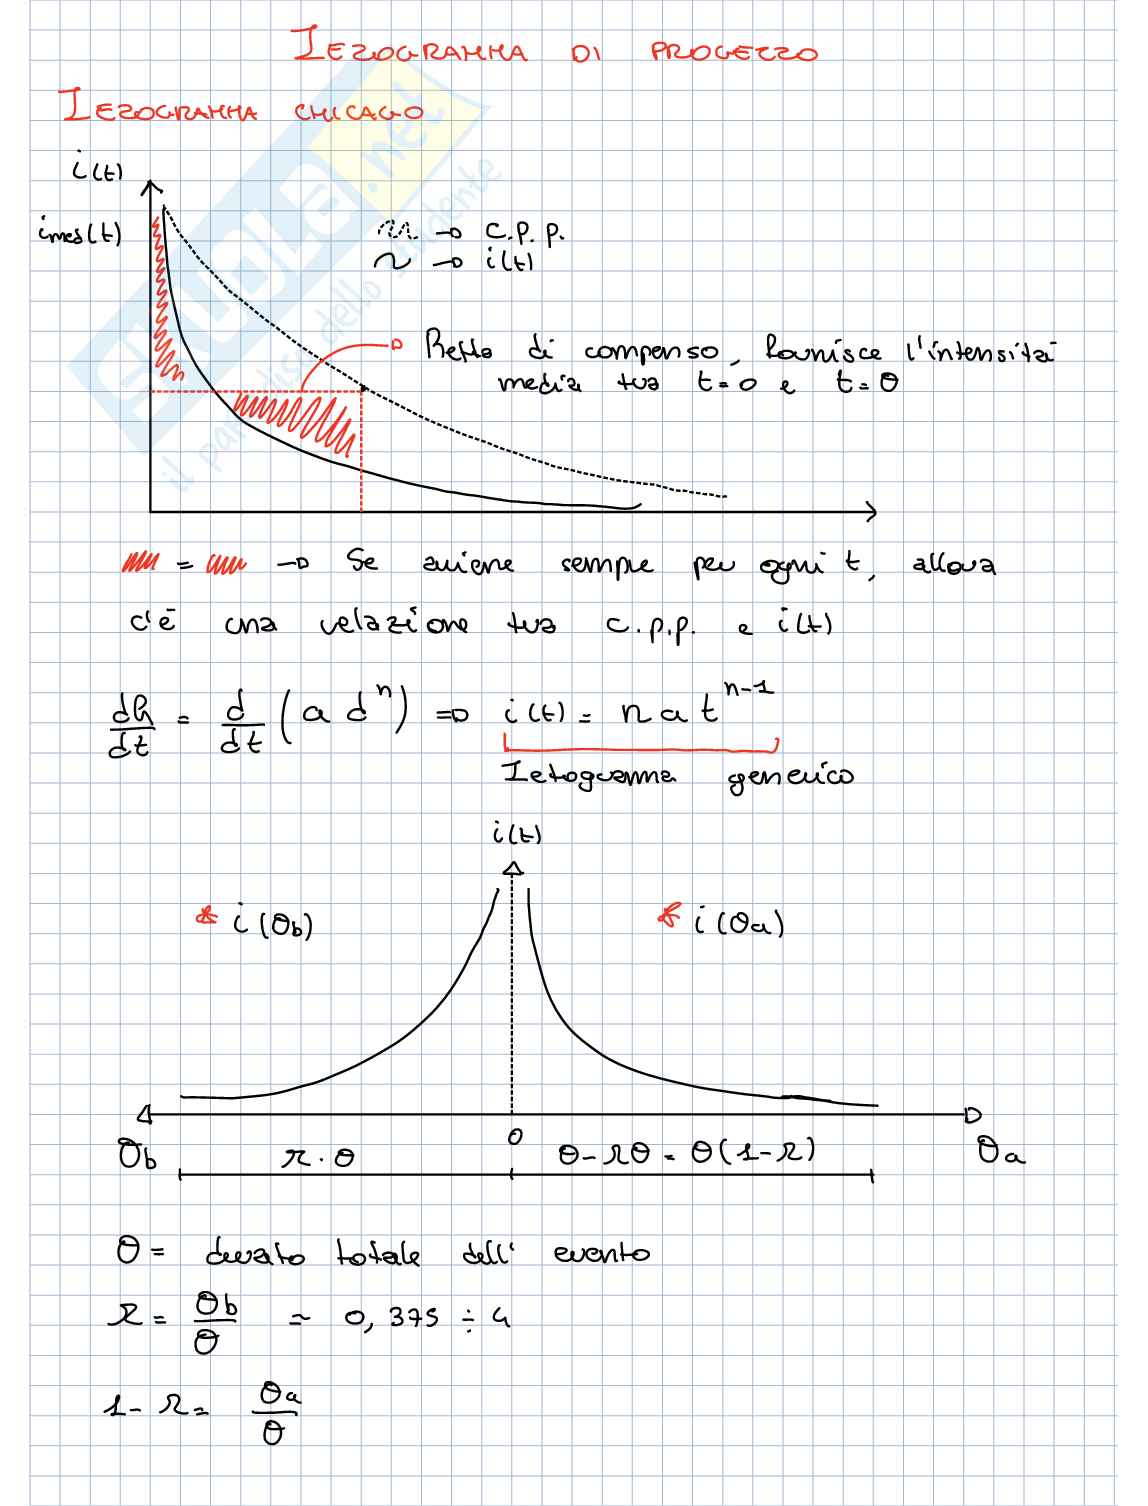 IEZOGRAMMA DI PROGEZZO
IEZOGRAMMA CHICAGO
i(t)
imes(t)
→ C.P.P.
→ i(t)
Retta di compenso, fornisce l'intensità
media tra t=0 e t=θ
= → Se aviene sempre per ogni t, allora
c'è una relazione tra c.p.p. e i(t)
dh/dt = d/dt (a d^n) ⇒ i(t) = n a t^(n-1)
Ietogramma generico
i(t)
* i(θb)
* i(θa)
θb
r·θ
0
θ-rθ = θ(1-r)
θa
θ = durato totale dell' evento
r = θb/θ ≃ 0,375 ÷ 4
1-r = θa/θ
SKUOLA.net
il paradiso dello studente